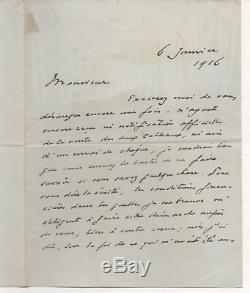 6 Janvier
1916
Monsieur
Excusez moi de vous
déranger encore une fois. N'ayant
encore reçu ni notification officielle
de la vente des deux tableaux, ni avis
d'un envoi de chèque, je voudrais bien
que vous eussiez la bonté de me faire
savoir si vous savez quelque chose. Pour
vous dire la vérité, les conditions finan-
cières dans lesquelles je me trouve m'
obligent à faire cette démarche auprès
de vous, bien à contre coeur; mais j'ai
dû, sur la foi de ce qui m'avait été an-